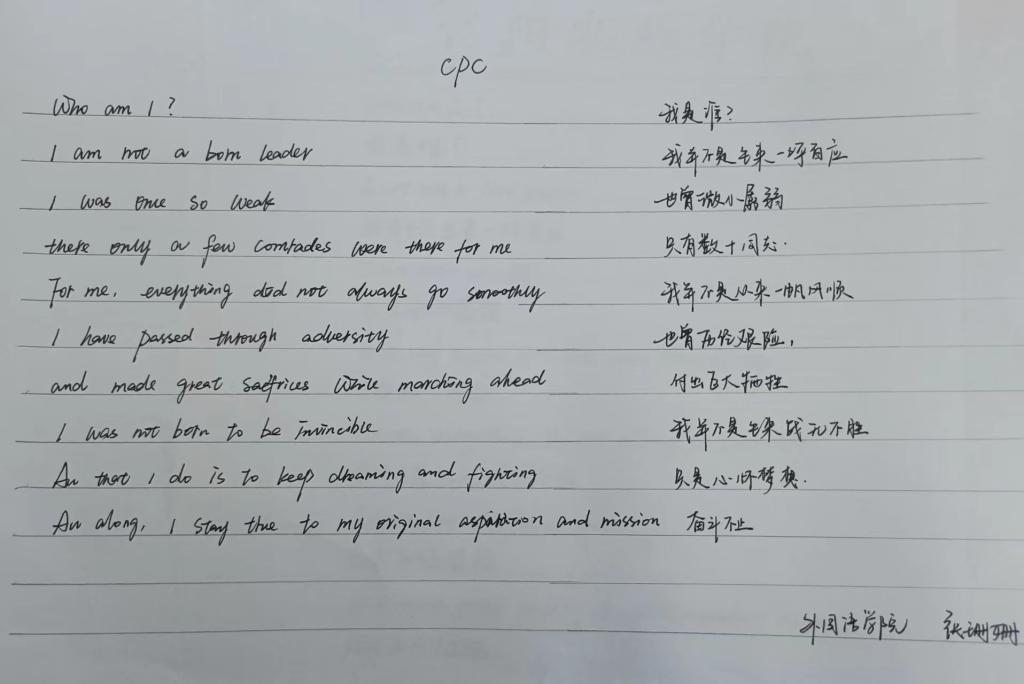 CPC
Who am I? 我是谁?
I am not a born leader 我并不是生来一呼百应
I was once so weak 也曾微小孱弱
there only a few comrades were there for me 只有数十同志.
For me, everything did not always go smoothly 我并不是从来一帆风顺
I have passed through adversity 也曾历经艰险,
and made great sacrifices while marching ahead 付出巨大牺牲
I was not born to be invincible 我并不是生来战无不胜
All that I do is to keep dreaming and fighting 只是心怀梦想.
All along, I stay true to my original aspiration and mission 奋斗不止
外国语学院 张珊珊